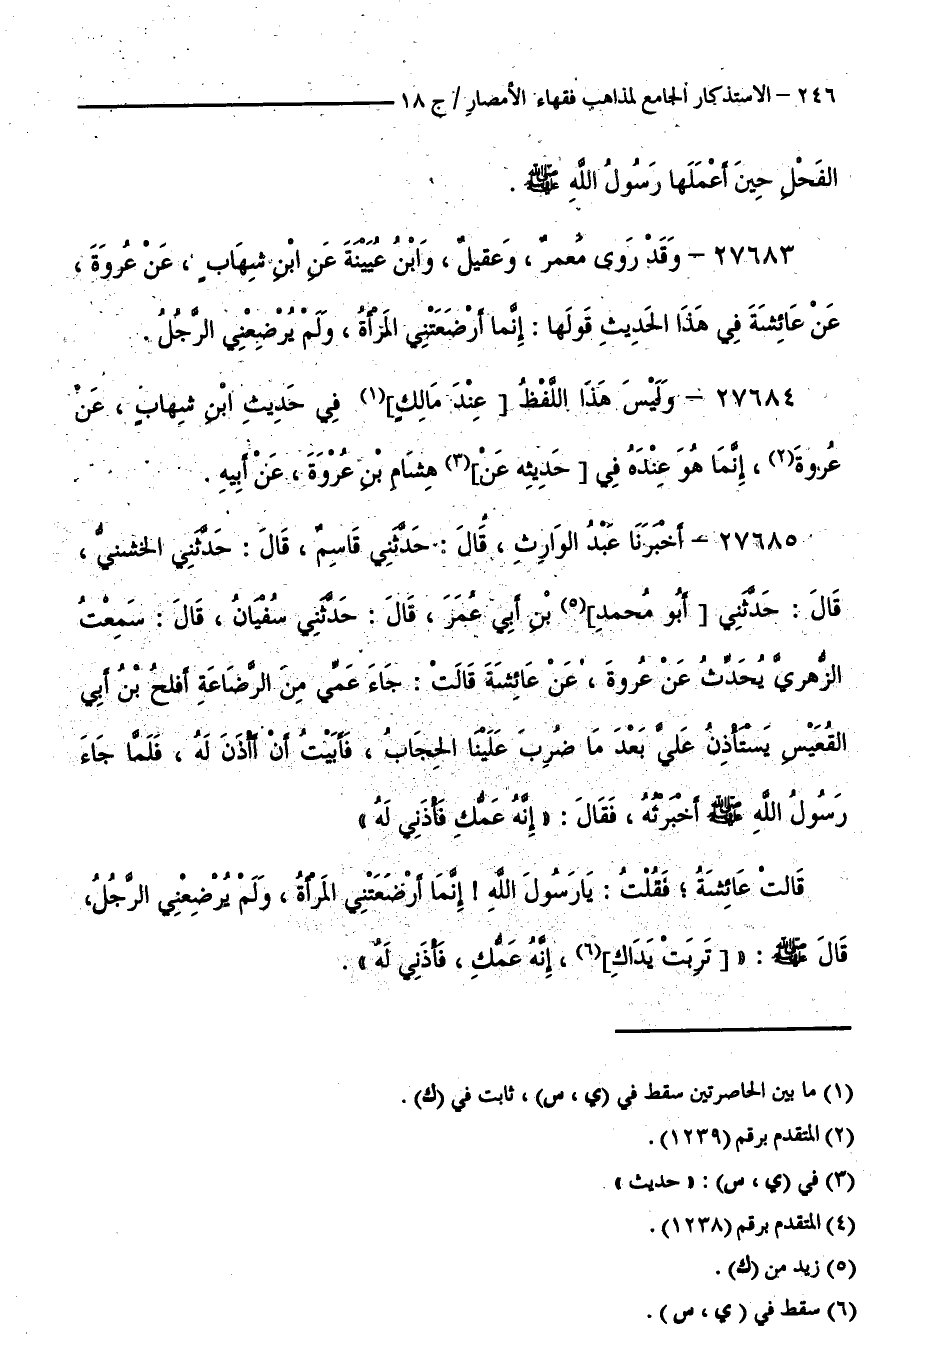 ٢٤٦ – الاستذكار الجامع لمذاهب فقهاء الأمصار / ج ١٨
الفَحْلِ حِينَ أَعْمَلَها رَسُولُ اللَّهِ ﷺ .
٢٧٦٨٣ – وَقَدْ رَوَى مُعمرٌ ، وَعقيلٌ ، وَابْنُ عُيَيْنَةَ عَنِ ابْنِ شِهَابٍ ، عَنْ عُروَةَ ،
عَنْ عَائِشَةَ فِي هَذَا الحَدِيثِ قَولَها : إِنَّما أَرْضَعَتْنِي المَرْأَةُ ، وَلَمْ يُرْضِعْنِي الرَّجُلُ .
٢٧٦٨٤ – وَلَيْسَ هَذَا اللَّفْظُ [ عِنْدَ مَالِكٍ](١) فِي حَدِيثِ ابْنِ شِهابٍ ، عَنْ
عُروةَ(٢) ، إِنَّمَا هُوَ عِنْدَهُ فِي [ حَدِيثِه عَنْ](٣) هِشَامِ بْنِ عُرْوَةَ ، عَنْ أَبِيهِ .
٢٧٦٨٥ – أَخبَرَنَا عَبْدُ الوَارِثِ ، قَالَ : حَدَّثَنِي قَاسِمٌ ، قَالَ : حَدَّثَنِي الخشنيُّ ،
قَالَ : حَدَّثَنِي [ أَبُو مُحمدِ](٥) بْنِ أَبِي عُمَرَ ، قَالَ : حَدَّثَنِي سُفْيَانُ ، قَالَ : سَمِعْتُ
الزُّهريَّ يُحَدِّثُ عَنْ عُروةَ ، عَنْ عَائِشَةَ قَالَتْ : جَاءَ عَمِّي مِنَ الرَّضَاعَةِ أَفلحُ بْنُ أَبِي
القُعَيْسِ يَسْتَأْذِنُ عَلَيَّ بَعْدَ مَا ضُرِبَ عَلَيْنَا الحِجَابُ ، فَأَبَيْتُ أَنْ أَأْذَنَ لَهُ ، فَلَمَّا جَاءَ
رَسُولُ اللَّهِ ﷺ أَخبَرْتُهُ ، فَقَالَ : « إِنَّهُ عَمُّكِ فَأْذَنِي لَهُ »
قَالتْ عَائِشَةُ ؛ فَقُلْتُ : يَارَسُولَ اللَّهِ ! إِنَّمَا أَرْضَعَتْنِي المَرْأَةُ ، وَلَمْ يُرْضِعْنِي الرَّجُلُ،
قَالَ ﷺ : « [ تَرِبَتْ يَدَاكِ](٦) ، إِنَّهُ عَمُّكِ ، فَأْذَنِي لَهُ » .
(١) ما بين الحاصرتين سقط في (ي ، س) ، ثابت في (ك) .
(٢) المتقدم برقم (١٢٣٩) .
(٣) في (ي ، س) : « حديث »
(٤) المتقدم برقم (١٢٣٨) .
(٥) زيد من (ك) .
(٦) سقط في ( ي ، س ) .